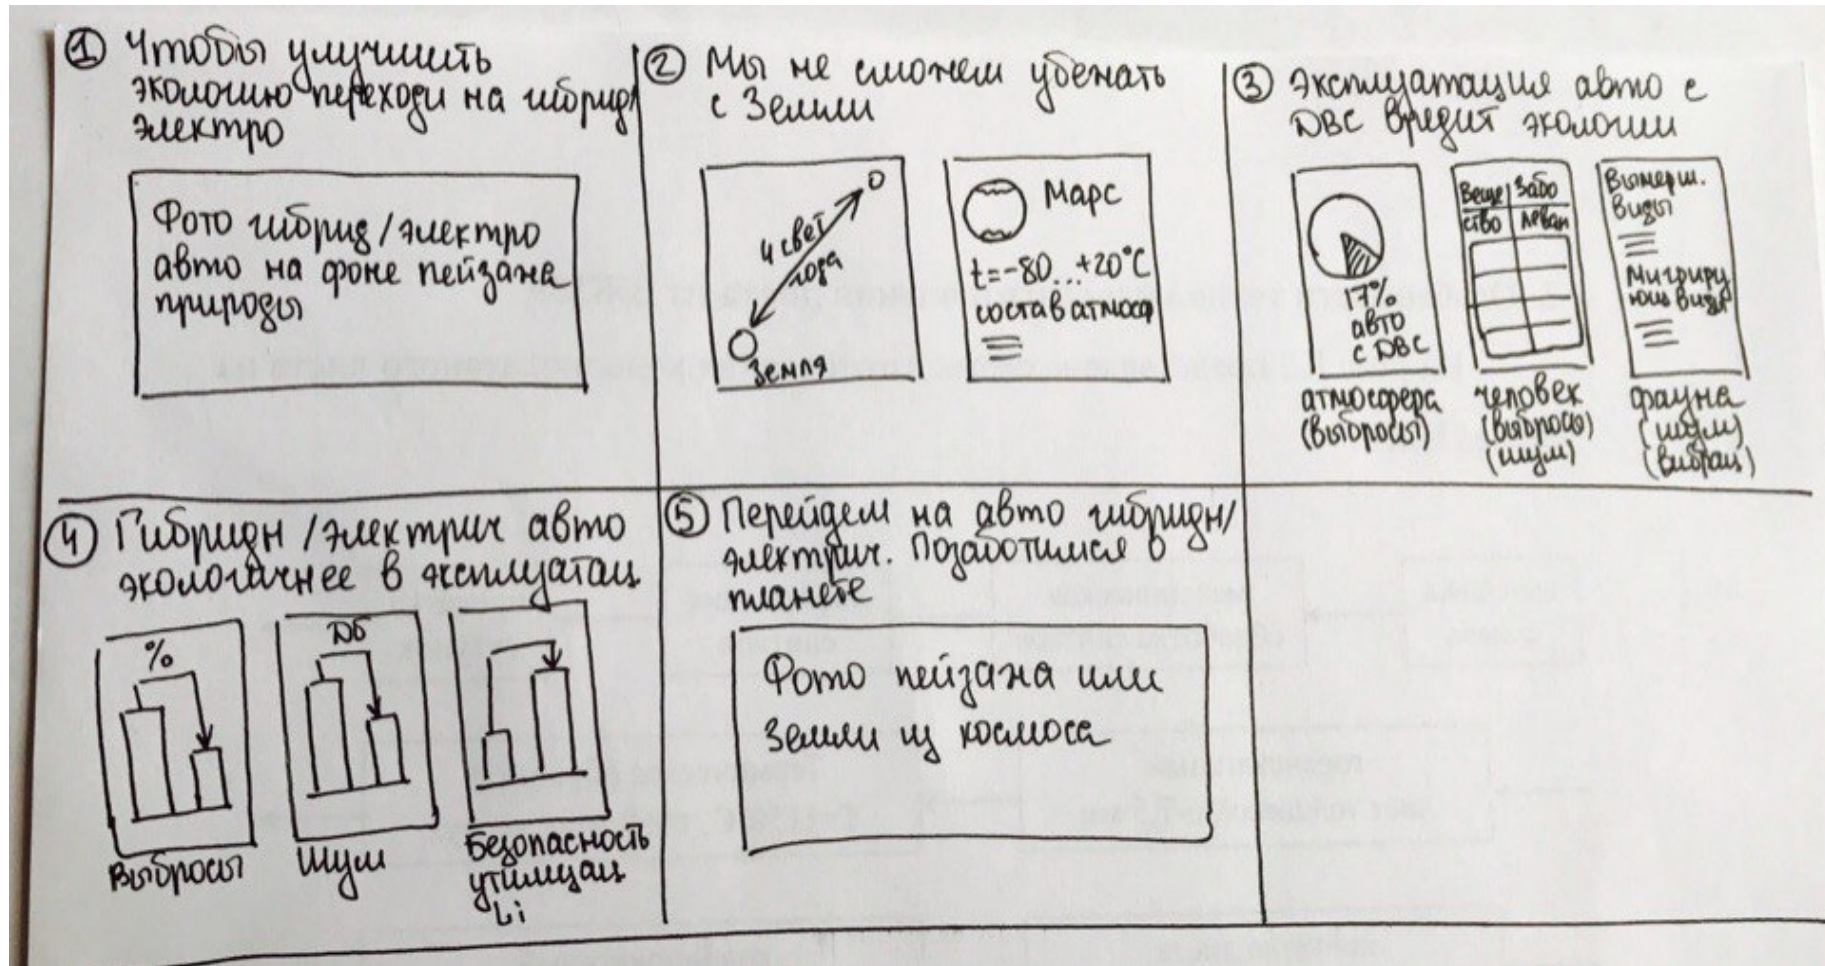 ① Чтобы улучшить
экологию переходи на гибрид/
электро
Фото гибрид/электро
авто на фоне пейзажа
природы
② Мы не сможем убежать
с Земли
4 свет
года
Земля
Марс
t=-80...+20°C
состав атмосф
③ Эксплуатация авто с
ДВС вредит экологии
17%
авто
с ДВС
атмосфера
(выбросы)
Веще Забо
ство леван
человек
(выбросы)
(шум)
Вымерш.
виды
Мигриру
ющ виды
фауна
(шум)
(вибрац)
④ Гибридн/электрич авто
экологичнее в эксплуатац.
%
Выбросы
Дб
Шум
Безопасность
утилизац
Li
⑤ Перейдем на авто гибридн/
электрич. Позаботимся о
планете
Фото пейзажа или
Земли из космоса